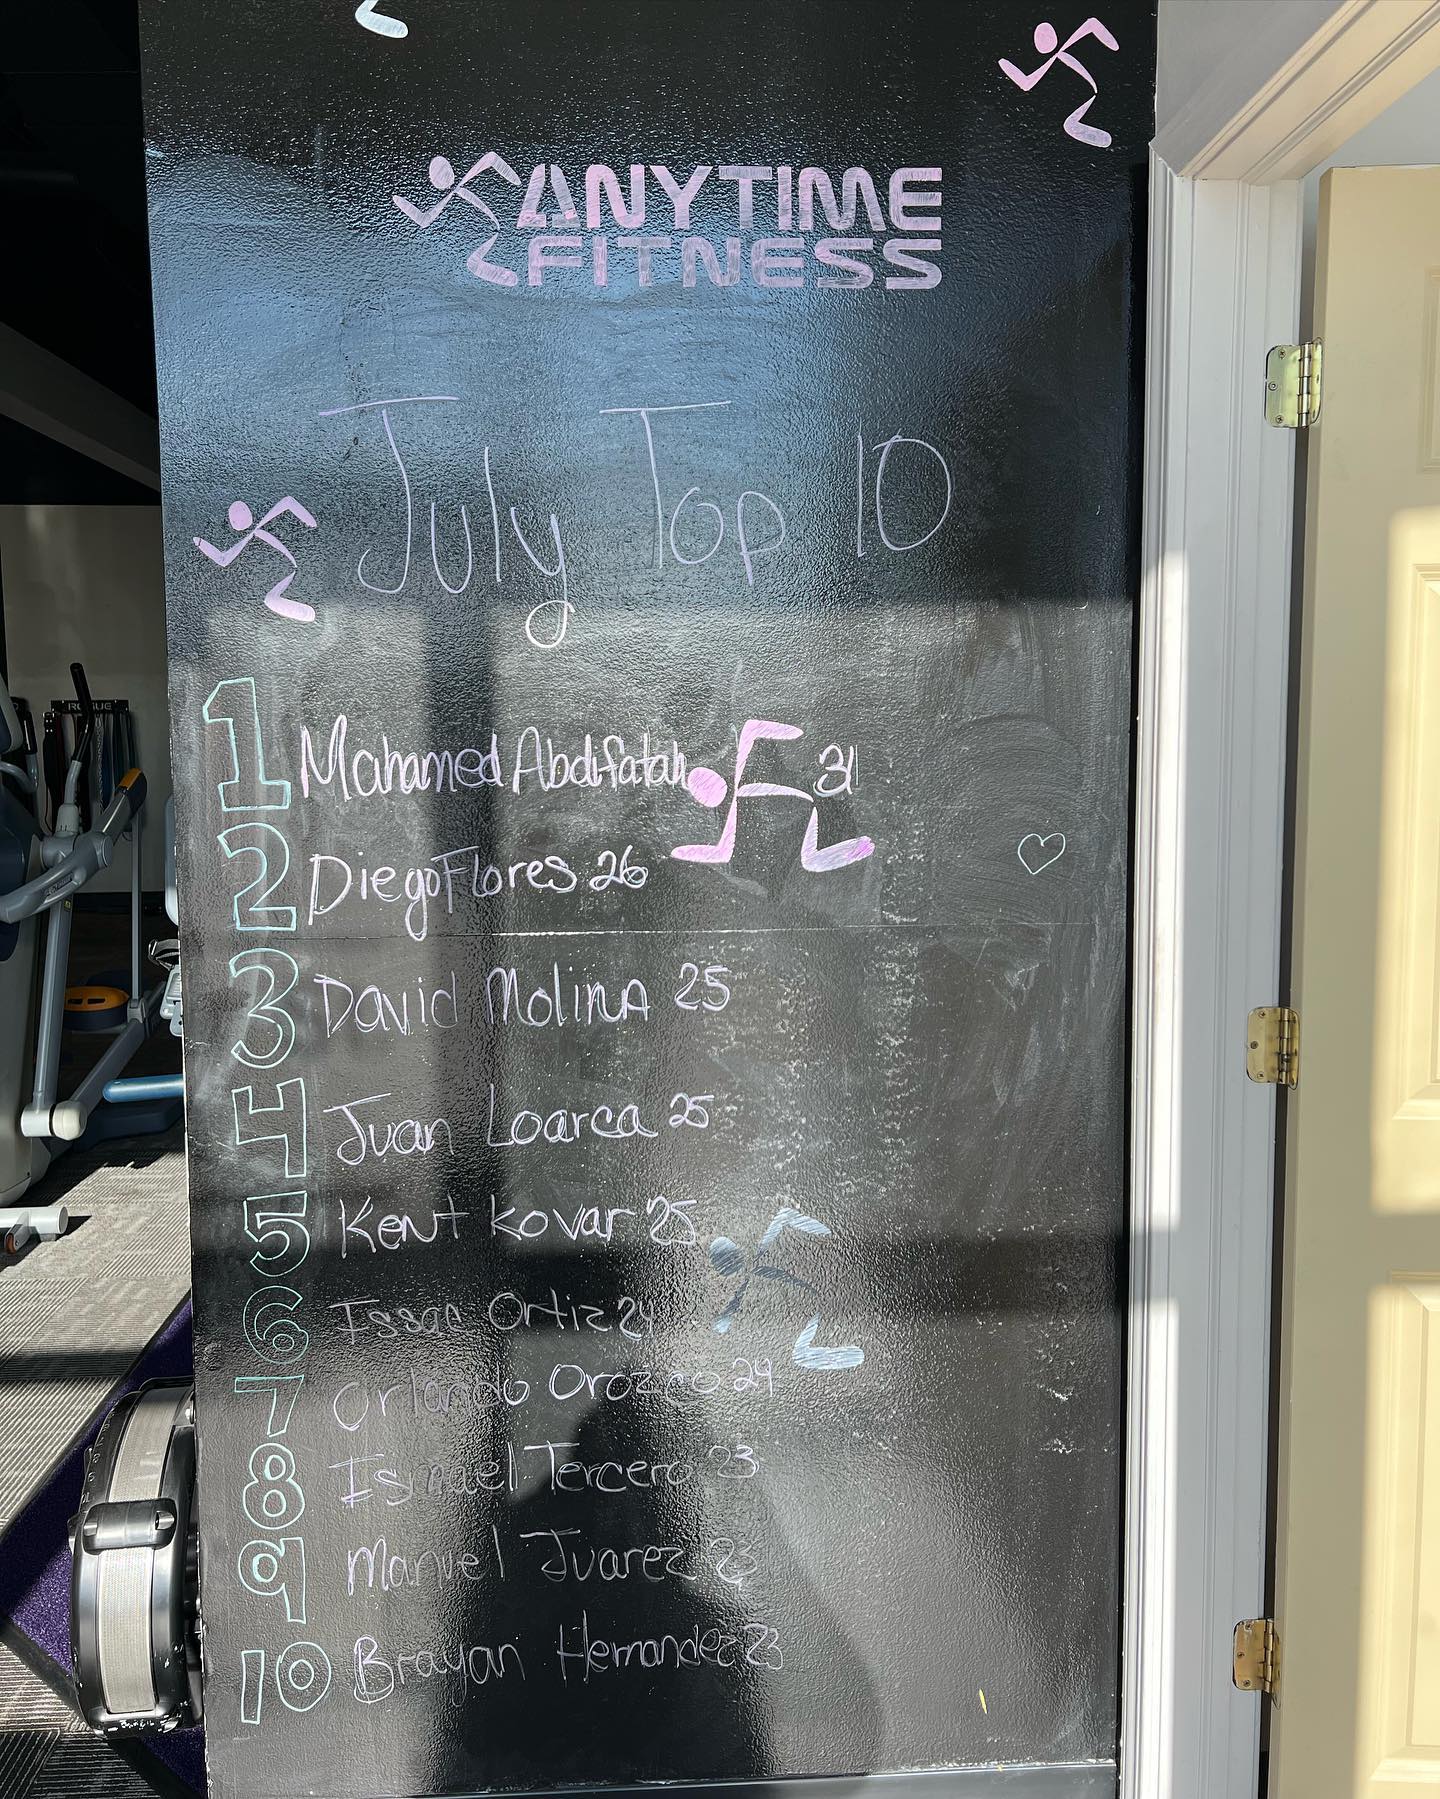 ANYTIME
FITNESS
July Top 10
1 Mohamed Abdifatah 31
2 Diego Flores 26
3 David Molina 25
4 Juan Loarca 25
5 Kent Kovar 25
6 Issac Ortiz 24
7 Orlando Orozco 24
8 Ismael Tercero 23
9 Manuel Juarez 23
10 Brayan Hernandez 23
ROGUE